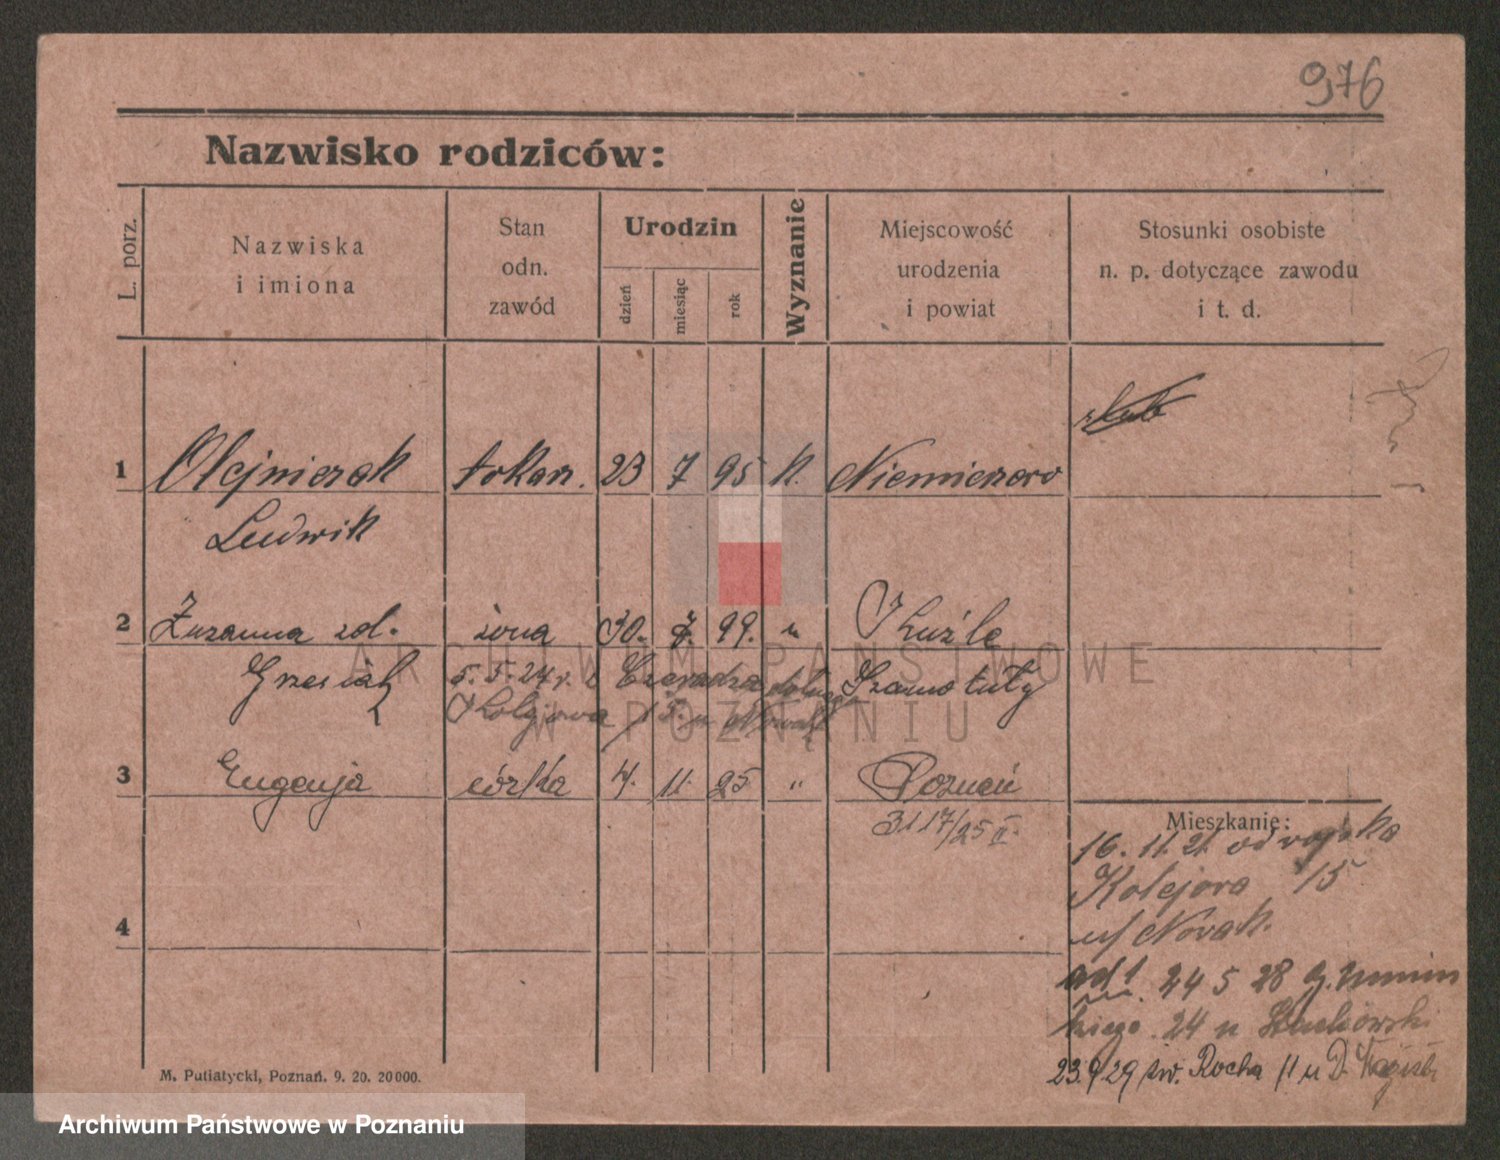 976
Nazwisko rodziców:
L. porz.
Nazwiska
i imiona
Stan
odn.
zawód
Urodzin
dzień
miesiąc
rok
Wyznanie
Miejscowość
urodzenia
i powiat
Stosunki osobiste
n. p. dotyczące zawodu
i t. d.
1 Olejniczak tokarz. 23 7 95 k. Niemieczkowo
Ludwik
2 Zuzanna zd. żona 30. 7. 99. " Koźle
Grzesiak 5.5.24 r. z Szamotuły
15. u Nowak
3 Eugenja córka 4. 11. 25 " Poznań
3117/25 II.
4
Mieszkanie:
16. 11. 21. od wojska
Kolejowa 15
u/ Nowak.
od 1. 24 5 28
24 u
23.9/29 św. Rocha 11 u
M. Putiatycki, Poznań. 9. 20. 20000.
ARCHIWUM PAŃSTWOWE
W POZNANIU
Archiwum Państwowe w Poznaniu